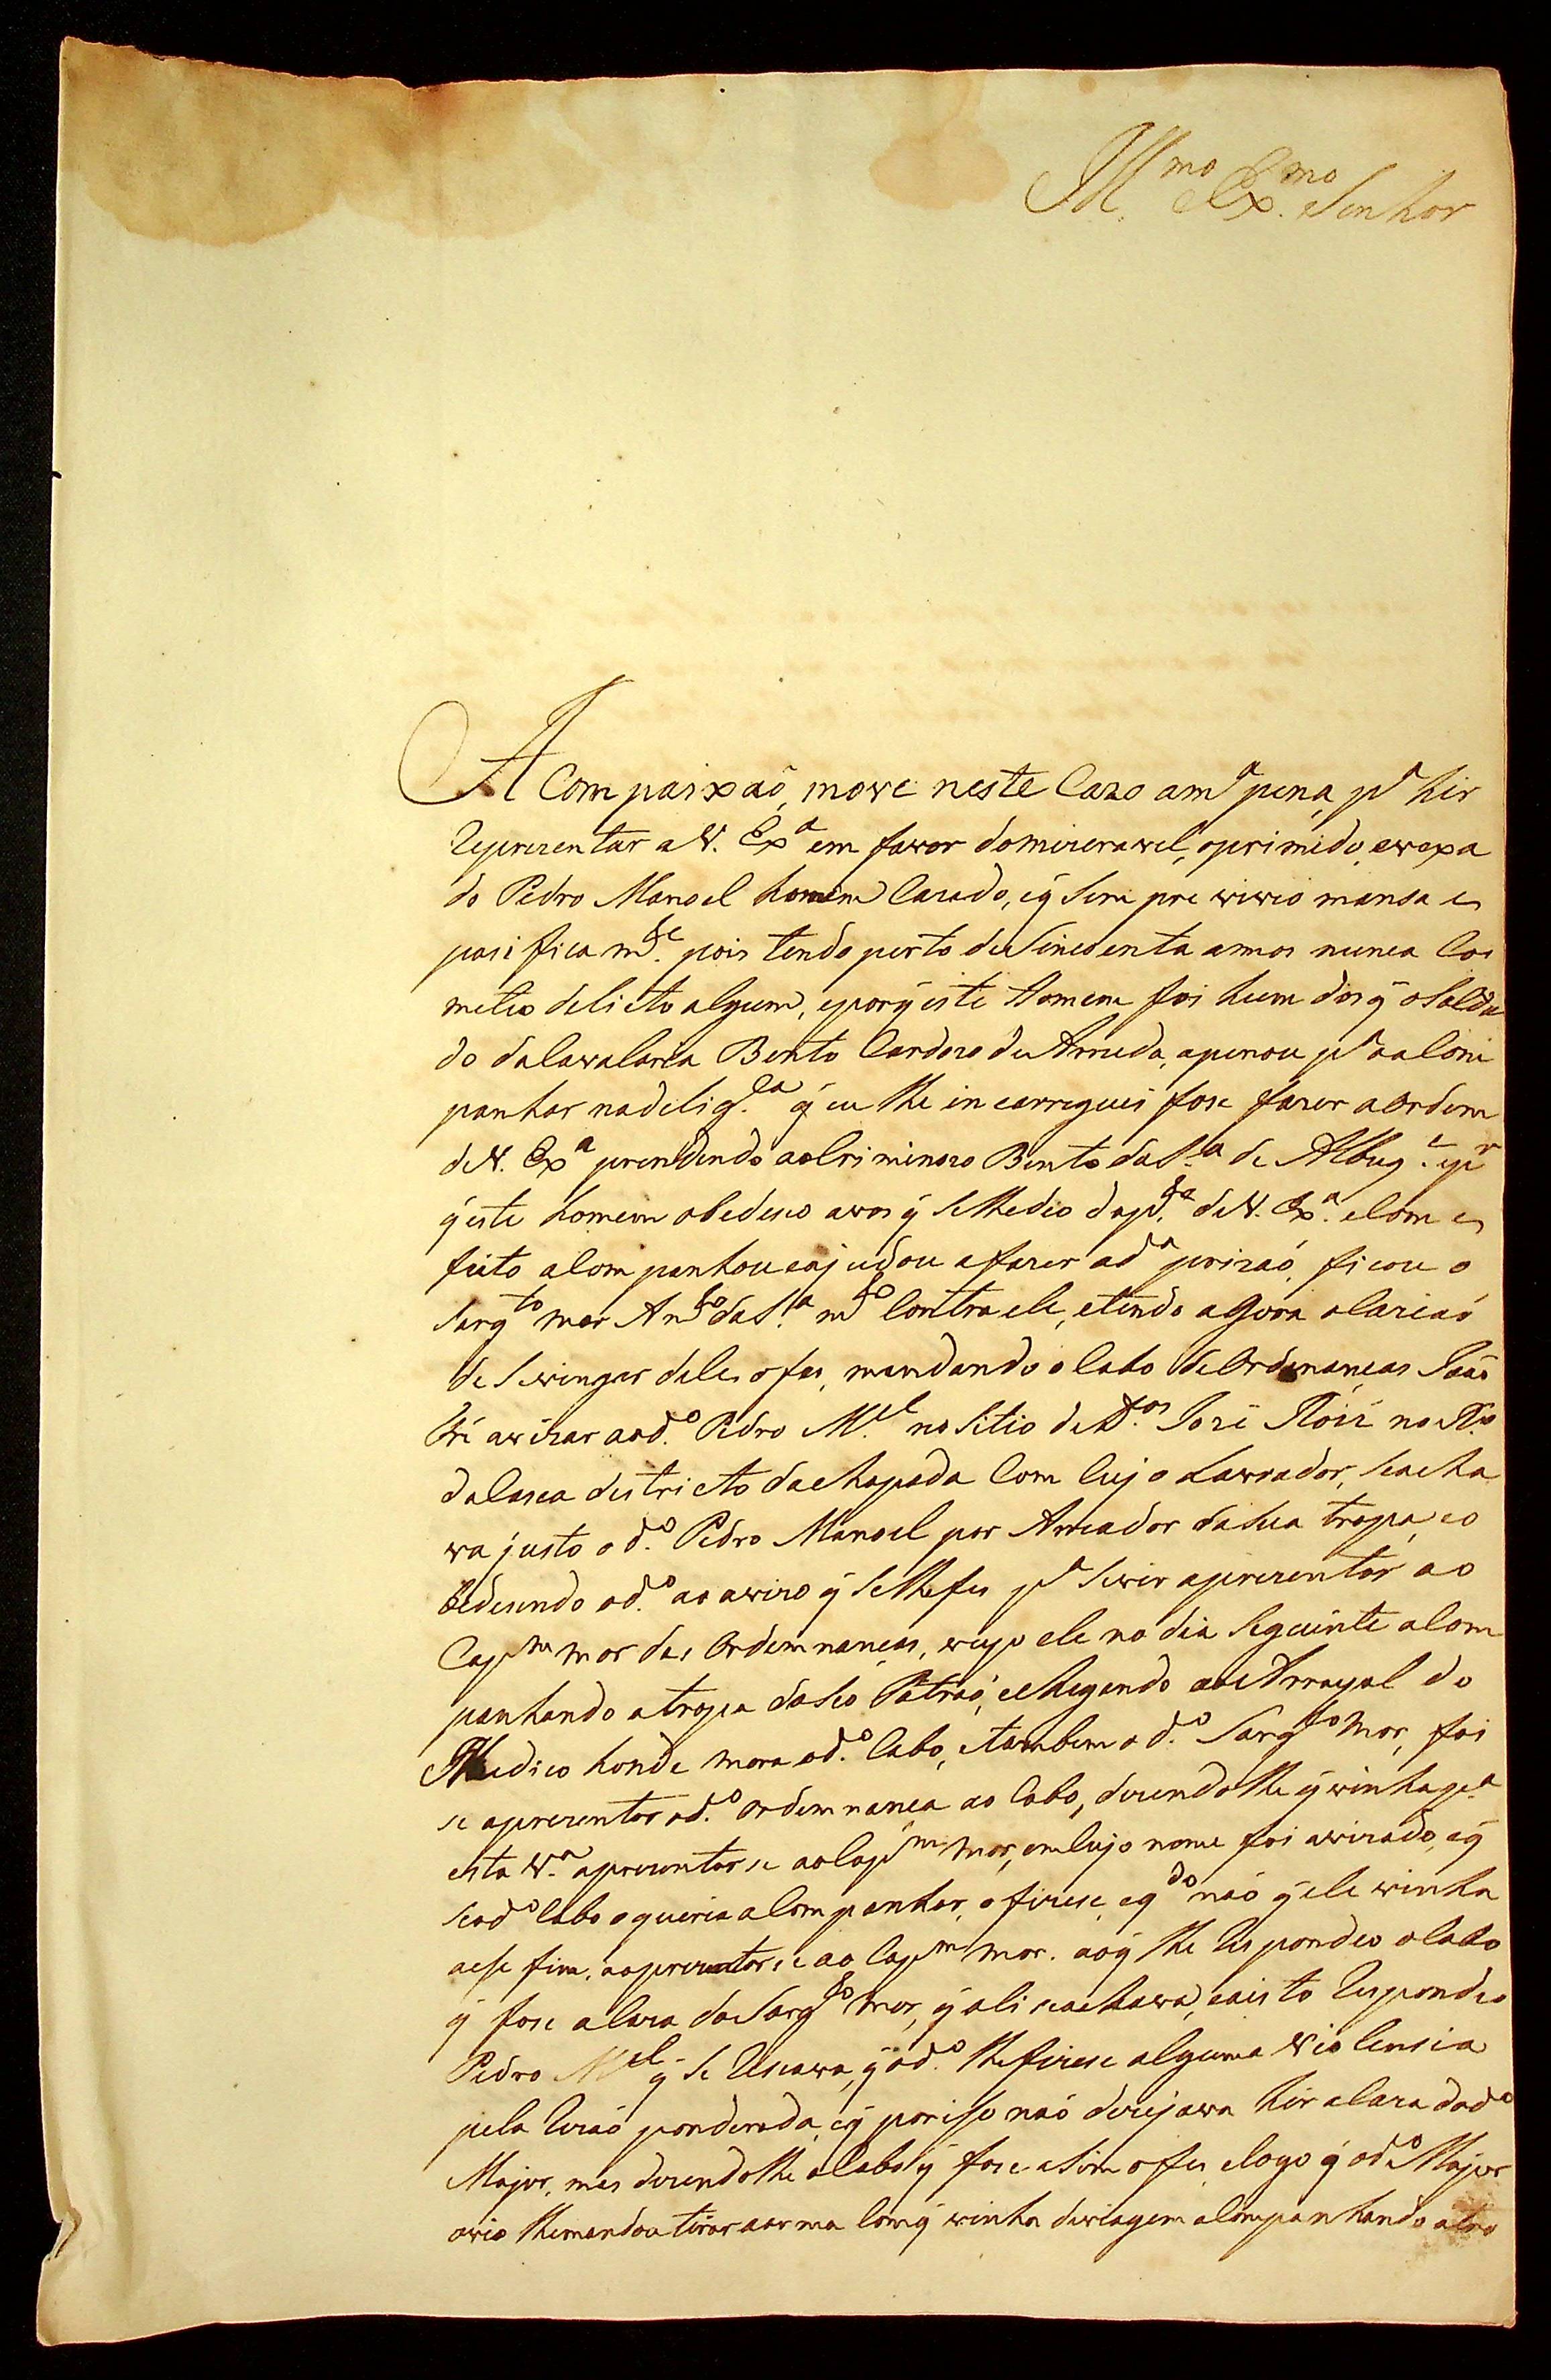 Ill.mo e Ex.mo Senhor
A Compaixaõ, move neste Cazo a m.a pena, p.a hir
Reprezentar a V. Ex.a em favor do mizeravel, oprimido, e vexa
do Pedro Manoel homem Cazado, e q̃ Sempre viveo mansa e
pasificam.te pois tendo perto de Sincoenta annos nunca Co
meteo delicto algum, e porq̃ este homem foi hum dos q̃ o Solda
do da Cavalaria Bento Cardozo de Arruda, apenou p.a a Com
panhar na delig.ca q̃ eu lhe incarreguei fose fazer a ordem
de V. Ex.a prendendo ao Criminozo Bento da S.a de Albuq.e e p.r
q̃ este homem obedeseo a vos q̃ Se lhe deo da p.te de V. Ex.a e Com e
feito aCompanhou e ajudou a fazer a d.a prizaõ, ficou o
Sarg.to mor An.to da S.a m.to Contra ele, e tendo agora oCaziaõ
de Se vingar dele o fes, mandando o Cabo de Ordenancas Joaõ
avizar ao d.o Pedro M.el no Sitio de José Róiz no R.o
da Casca destricto da chapada Com Cujo Lavrador, Se acha
va justo o d.o Pedro Manoel por Arreador da Sua tropa, e o
bedesendo o d.o ao avizo q̃ Se lhe fes p.a Se vir aprezentar ao
Cap.m mor das Ordemnancas, veyo ele no dia Seguinte aCom
panhando a tropa do Seo Patraõ, e chegando ao Arrayal do
Medico honde mora o d.o Cabo, e tambem o d.o Sarg.to Mor, foi
se aprezentar o d.o ordemnanca ao Cabo, dizendo lhe q̃ vinha p.a
esta V.a aprezentar se ao Cap.m Mor, em Cujo nome foi avizado, e q̃
Se o d.o Cabo o queria aCompanhar, o fizese, e q.do naõ q̃ ele vinha
a ese fim, a aprezentar se ao Cap.m mor. ao q̃ lhe Respondeo o Cabo
q̃ fose a Caza do Sarg.to Mor, q̃ ali se achava, e a isto Respondeo
Pedro M.el q̃ Se Reseava, q̃ o d.o lhe fizese alguma Violensia
pela Rezaõ ponderada, e q̃ por iso naõ dezejava hir a Caza do d.o
Major, mas dizendo lhe o Cabo q̃ fose aSim o fes, e logo q̃ o d.o Major
o vio lhe mandou tirar a arma Com q̃ vinha de viagem aCompanhando a tro